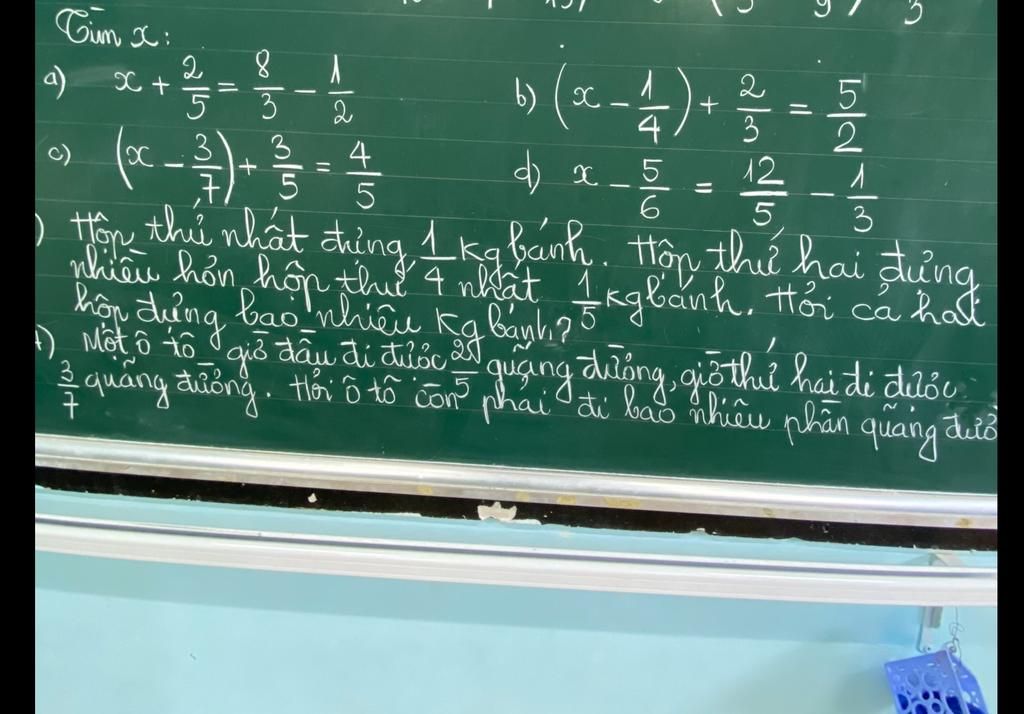 Tìm x:
a) x + 2/5 = 8/3 - 1/2
b) (x - 1/4) + 2/3 = 5/2
c) (x - 3/7) + 3/5 = 4/5
d) x - 5/6 = 12/5 - 1/3
) Hộp thứ nhất đựng 1/4 kg bánh. Hộp thứ hai đựng
nhiều hơn hộp thứ nhất 1/5 kg bánh. Hỏi cả hai
hộp đựng bao nhiêu kg bánh?
) Một ô tô giờ đầu đi được 2/5 quãng đường, giờ thứ hai đi được
3/7 quãng đường. Hỏi ô tô còn phải đi bao nhiêu phần quãng đườ